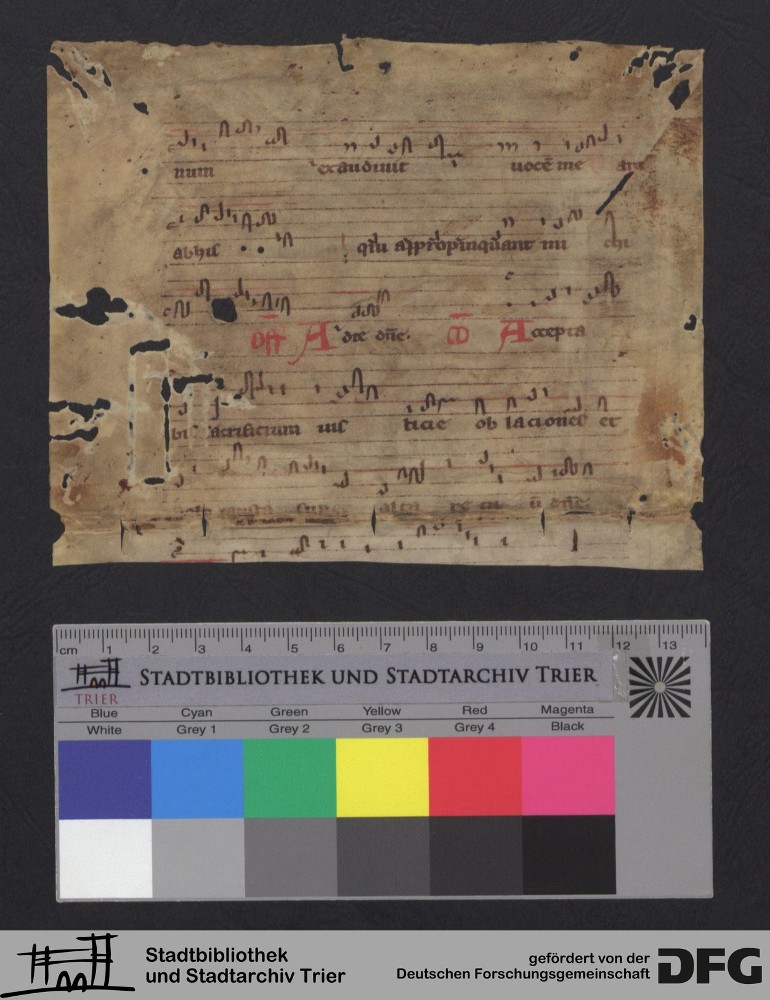 num exaudiuit uocē me am
abhis qui appropinquant mi chi
Off Ad te dñe. Co Accepta
bis sacrificium ius ticie ob laciones et
super altare tu ū dñe
cm 1 2 3 4 5 6 7 8 9 10 11 12 13
TRIER
STADTBIBLIOTHEK UND STADTARCHIV TRIER
Blue Cyan Green Yellow Red Magenta
White Grey 1 Grey 2 Grey 3 Grey 4 Black
Stadtbibliothek
und Stadtarchiv Trier
gefördert von der
Deutschen Forschungsgemeinschaft
DFG